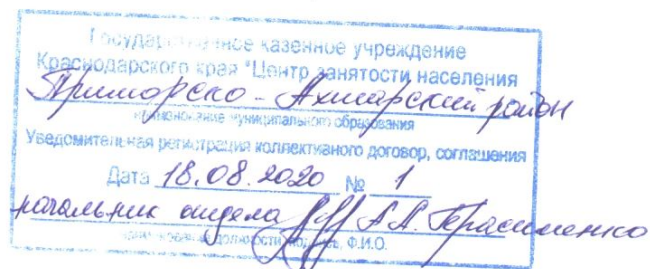 Государственное казенное учреждение
Краснодарского края "Центр занятости населения
Приморско-Ахтарский район
наименование муниципального образования
Уведомительная регистрация коллективного договор, соглашения
Дата 18.08.2020 № 1
начальник отдела А.А. Герасименко
наименование должности, подпись, Ф.И.О.